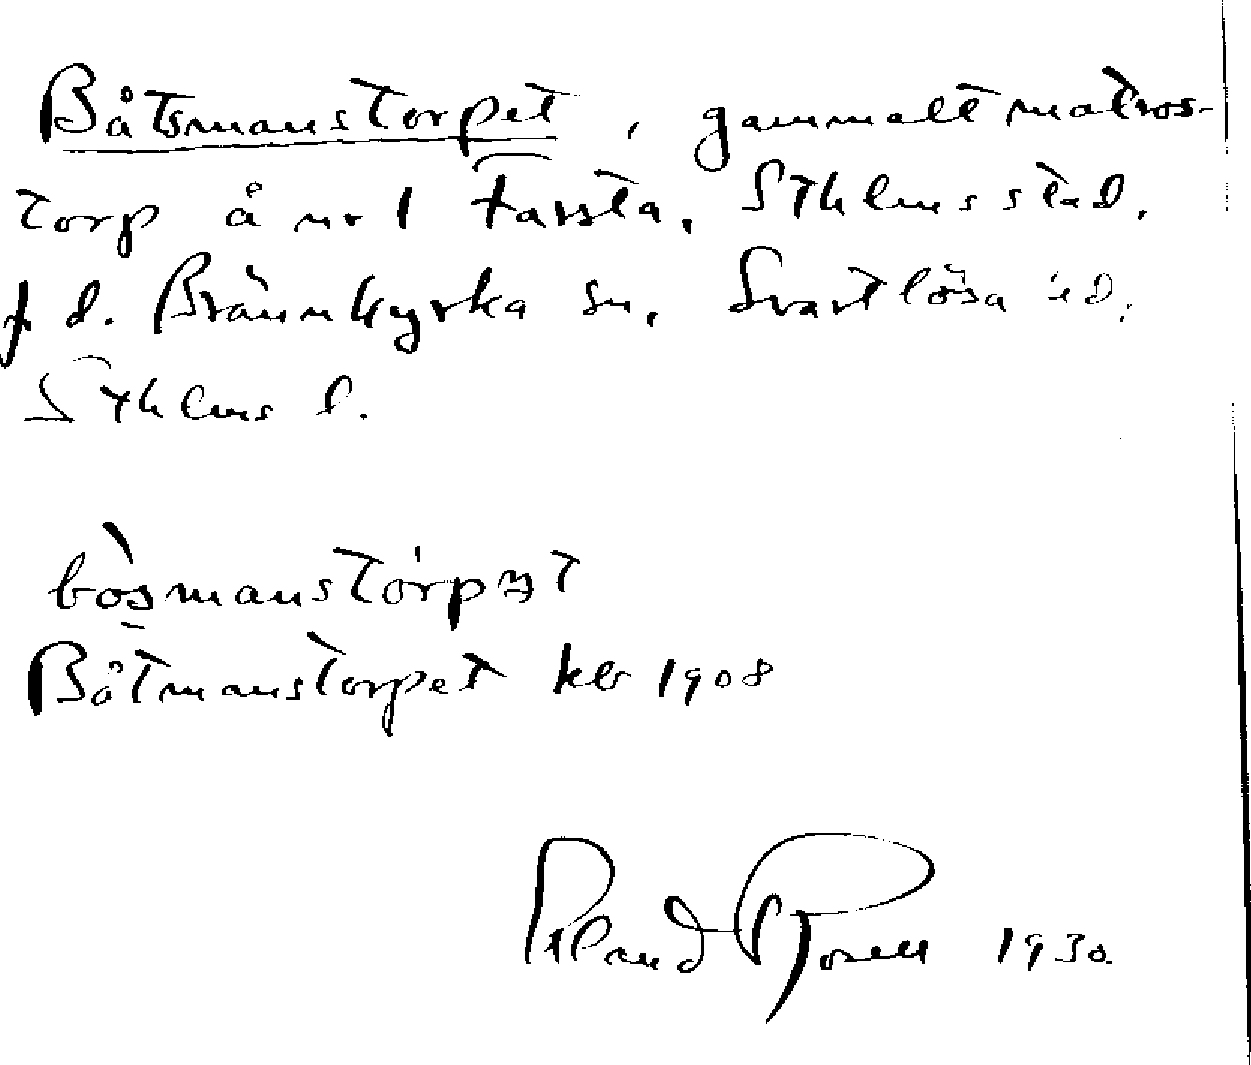 Båtsmanstorpet, gammalt matros-
torp å nr 1 Farsta, Sthlms stad.
f. d. Brännkyrka sn, Svartlösa hd,
Sthlms l.
bòsmanstórpət
Båtmanstorpet kb 1908
1930